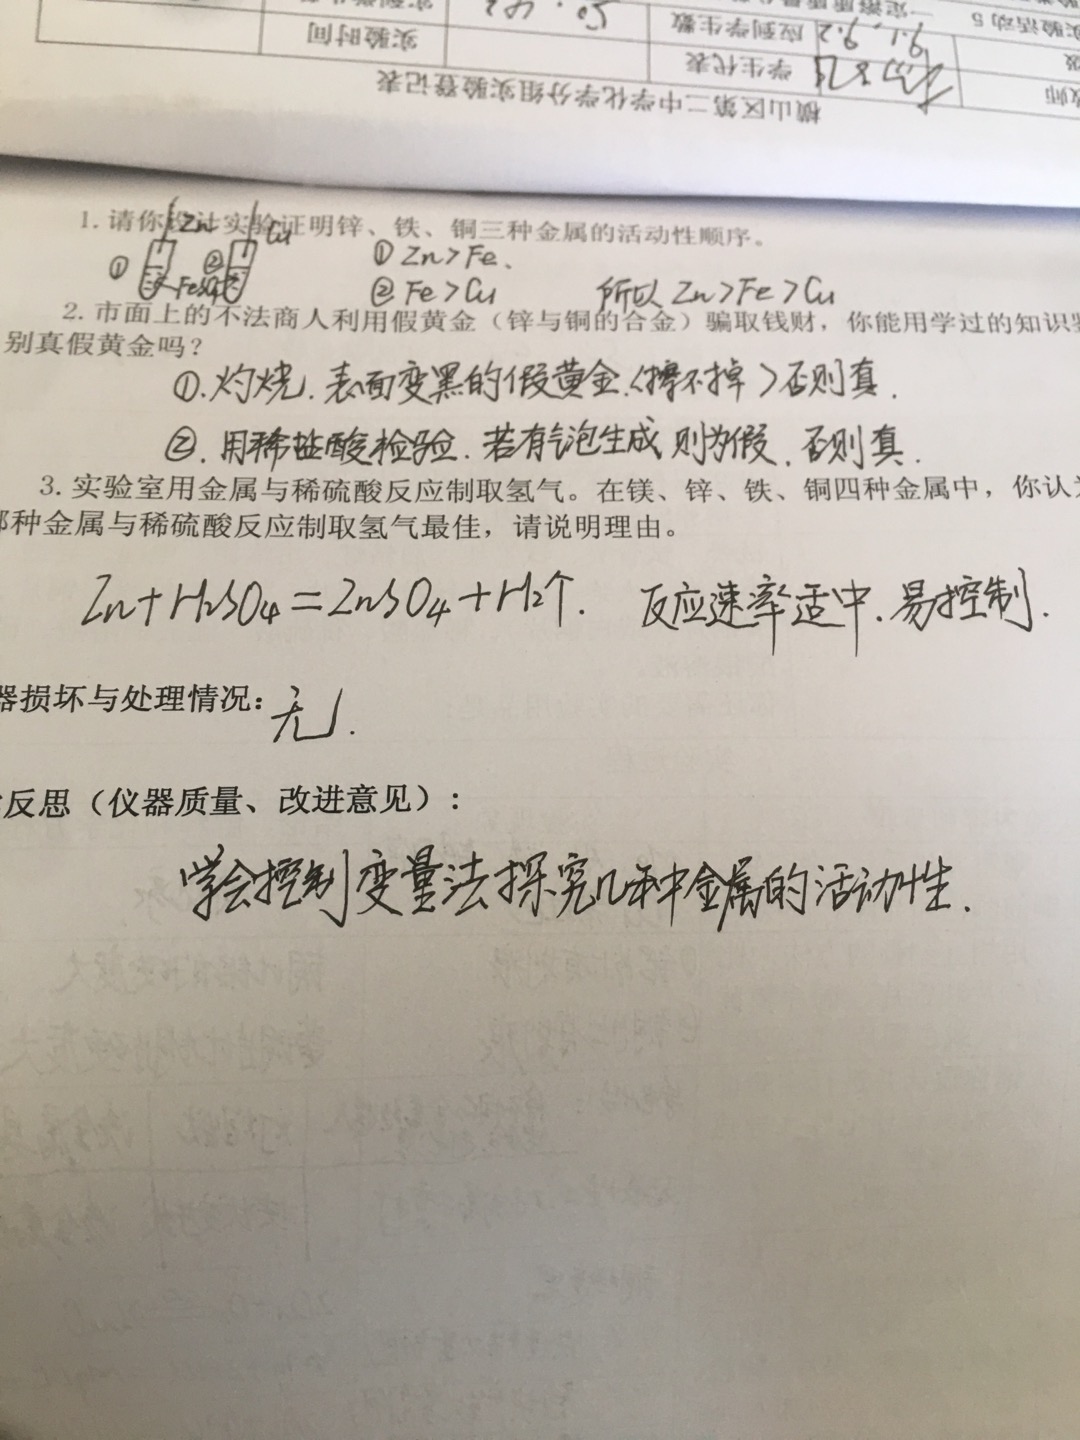 横山区第二中学化学分组实验登记表
学生代表
实验时间
应到学生数
9.1, 9.2
实验活动5
1. 请你设计实验证明锌、铁、铜三种金属的活动性顺序。
Zn Cu
① ② FeSO4
① Zn>Fe、
② Fe>Cu 所以 Zn>Fe>Cu
2. 市面上的不法商人利用假黄金（锌与铜的合金）骗取钱财，你能用学过的知识鉴
别真假黄金吗？
①.灼烧.表面变黑的假黄金.(擦不掉)否则真.
②.用稀盐酸检验.若有气泡生成则为假.否则真.
3. 实验室用金属与稀硫酸反应制取氢气。在镁、锌、铁、铜四种金属中，你认为
哪种金属与稀硫酸反应制取氢气最佳，请说明理由。
Zn+H2SO4=ZnSO4+H2↑. 反应速率适中.易控制.
器损坏与处理情况：无.
反思（仪器质量、改进意见）：
学会控制变量法探究几种金属的活动性.